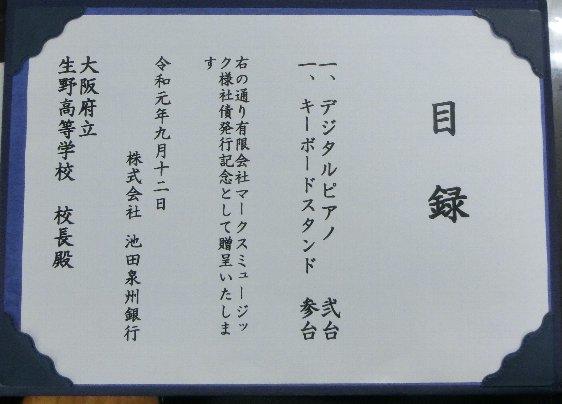 目録
一、デジタルピアノ 弐台
一、キーボードスタンド 参台
右の通り有限会社マークスミュージッ
ク様社債発行記念として贈呈いたしま
す
令和元年九月十二日
株式会社 池田泉州銀行
大阪府立
生野高等学校 校長殿